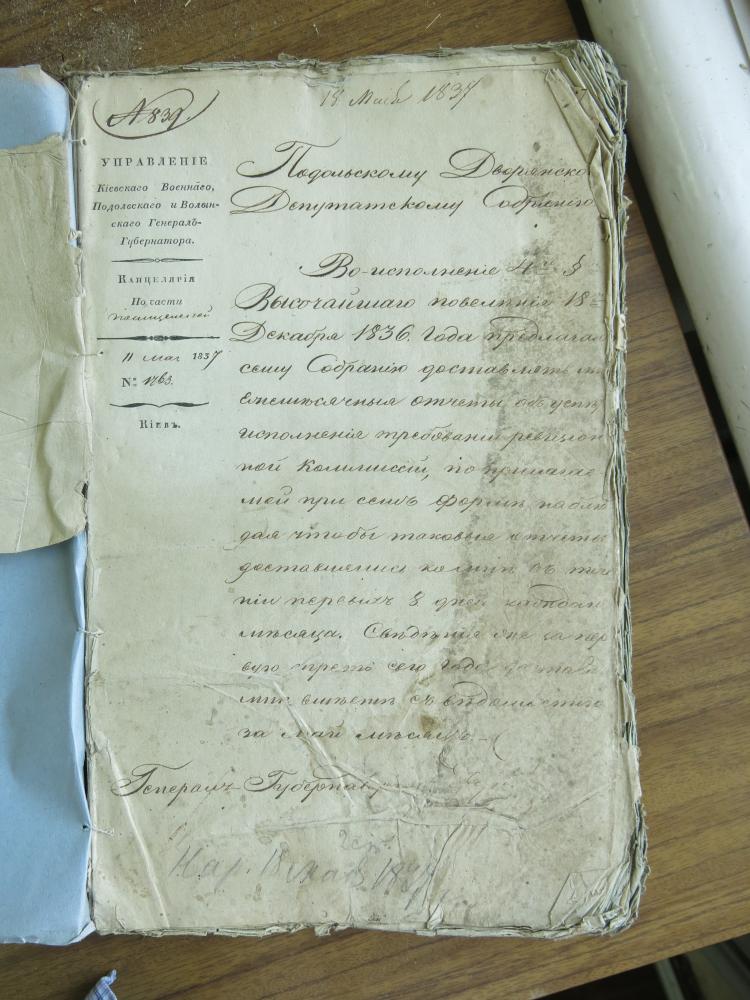 N 839.
18 Мая 1837
УПРАВЛЕНІЕ
Кіевскаго Военнаго,
Подольскаго и Волын-
скаго Генералъ-
Губернатора.
Канцелярія
По части
11 мая 1837
№ 1763.
Кіевъ.
Подольскому Дворянско
Депутатскому Собранію
Во исполненіе 4го §
Высочайшаго повелѣнія 18го
Декабря 1836. Года предлагаю
сему Собранію доставлять мнѣ
ежемѣсячныя отчеты объ успѣ
исполненія требованій ревизіон
ной Коммиссіи, по прилагае
мой при семъ формѣ наблю
дая чтобы таковыя отчеты
доставлялись ко мнѣ въ тече
ніи первыхъ 8 дней каждаго
мѣсяца. Свѣденіе же за пер
вую треть сего года достав
мнѣ вмѣстѣ съ вѣдомостію
за май мѣсяцъ.
Генералъ Губернат
2 ст.
Нар. 18 мая 1837